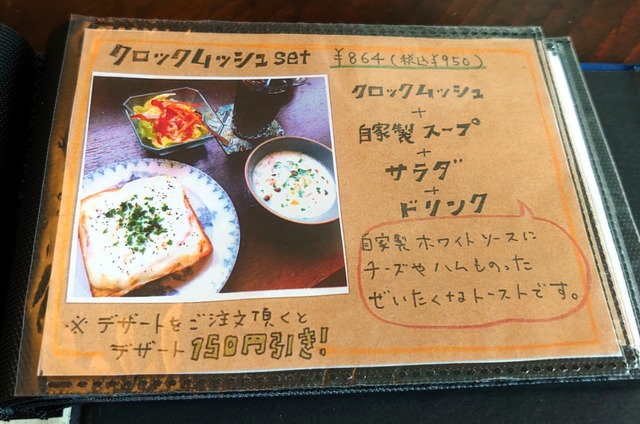 クロックムッシュset ¥864(税込¥950)
クロックムッシュ
+
自家製スープ
+
サラダ
+
ドリンク
自家製ホワイトソースに
チーズやハムものった
ぜいたくなトーストです。
※ デザートをご注文頂くと
デザート150円引き!